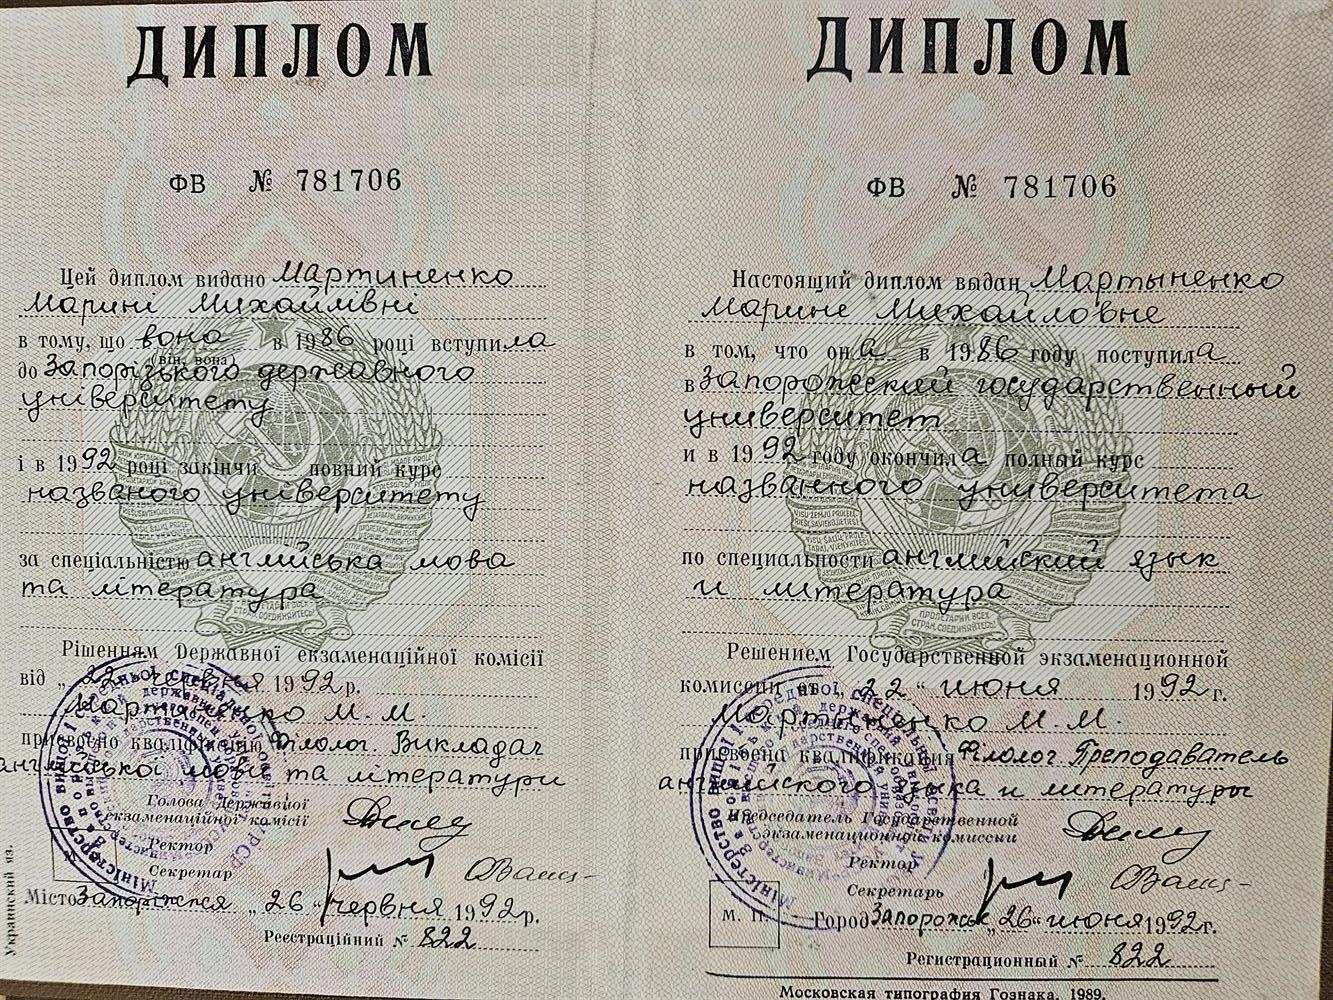 ДИПЛОМ
ФВ № 781706
Цей диплом видано Мартиненко
Марині Михайлівні
в тому, що вона в 1986 році вступила
(він, вона)
до Запорізького державного
університету
і в 1992 році закінчи повний курс
названого університету
за спеціальністю англійська мова
та література
Рішенням Державної екзаменаційної комісії
від „22 червня 1992 р.
Мартиненко М. М.
присвоєно кваліфікацію Філолог. Викладач
англійської мови та літератури
Голова Державної
екзаменаційної комісії
Ректор
Секретар
Місто Запоріжжя „26“ червня 1992р.
Реєстраційний № 822
Украинский яз.
ДИПЛОМ
ФВ № 781706
Настоящий диплом выдан Мартыненко
Марине Михайловне
в том, что она в 1986 году поступила
в Запорожский государственный
университет
и в 1992 году окончила полный курс
названного университета
по специальности английский язык
и литература
Решением Государственной экзаменационной
комиссии от „22“ июня 1992 г.
Мартыненко М. М.
присвоена квалификация Филолог. Преподаватель
английского языка и литературы
Председатель Государственной
экзаменационной комиссии
Ректор
Секретарь
М. П.
Город Запорожье „26“ июня 1992г.
Регистрационный № 822
Московская типография Гознака. 1989.